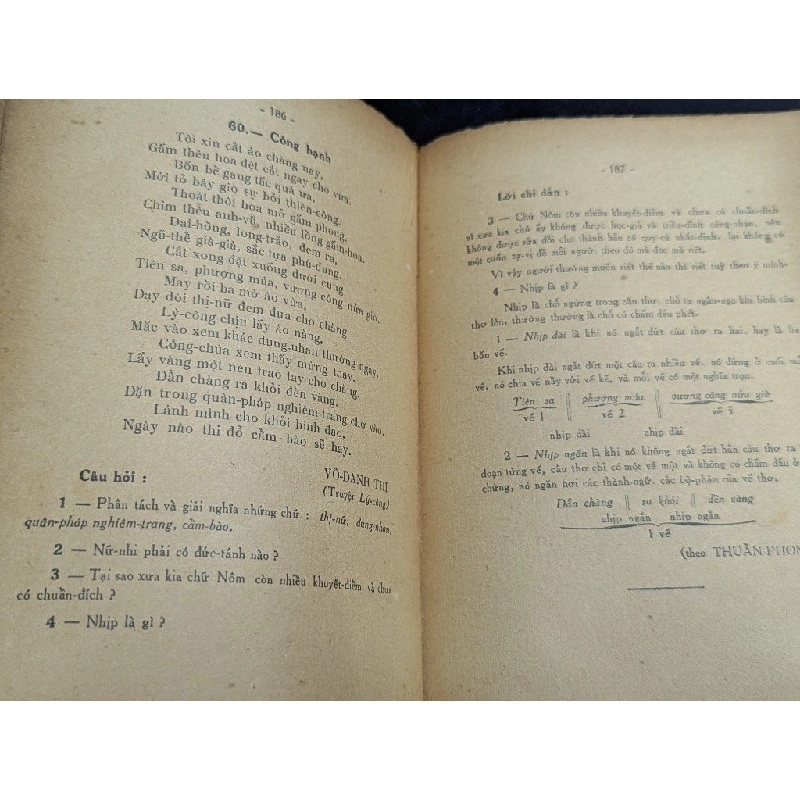 - 186 -
60.— Công hạnh
Tôi xin cắt áo chàng nay,
Gấm thêu hoa dệt cắt ngay cho vừa.
Bốn bề gang tấc quá ưa,
Mới tỏ bây giờ sự hỏi thiên-công.
Thoát thôi hoa mở gấm phong,
Chim thêu anh-vũ, nhiễu lồng gấm-hoa.
Đai-hồng, long-trảo, đem ra,
Ngũ-thể già-giả, sắc tựa phù-dung.
Cắt xong đặt xuống dưới cung
Tiên sa, phượng múa, vương công nửa giờ.
May rồi ba mở áo vừa,
Dạy đòi thị-nữ đem đưa cho chàng
Lý-công chịn lấy áo nàng,
Mặc vào xem khác dung-nhan thường ngày,
Công-chúa xem thấy mừng thay,
Lấy vàng một nén trao tay cho chàng,
Dẫn chàng ra khỏi đền vàng,
Dặn trong quân-pháp nghiêm-trang chớ cho,
Lánh mình cho khỏi hình đao,
Ngày nào thi đỗ cẩm-bào sẽ hay.
VÔ-DANH THỊ
(Truyện Lý-công)
Câu hỏi :
1 — Phân tách và giải nghĩa những chữ : thị-nữ, dung-nhan,
quân-pháp nghiêm-trang, cẩm-bào.
2 — Nữ-nhi phải có đức-tánh nào ?
3 — Tại sao xưa kia chữ Nôm còn nhiều khuyết-điểm và chưa
có chuẩn-đích ?
4 — Nhịp là gì ?
- 187 -
Lời chỉ dẫn :
3 — Chữ Nôm còn nhiều khuyết-điểm và chưa có chuẩn-đích
vì xưa kia chữ ấy không được học-giả và triều-đình công-nhận, nên
không được sửa đổi cho thành hẳn có quy-củ nhất-định, lại không có
một cuốn tự-vị để mỗi người theo đó mà đọc mà viết.
Vì vậy người thường muốn viết thế nào thì viết tuỳ theo ý mình.
4 — Nhịp là gì ?
Nhịp là chỗ ngừng trong câu thơ, chỗ ra ngân-nga khi bình câu
thơ lên, thường thường là chỗ có chấm dấu phết.
1 — Nhịp dài là khi nó ngắt dứt câu thơ ra hai, hay là ba
bốn vế.
Khi nhịp dài ngắt dứt một câu ra nhiều vế, nó đứng ở cuối mỗi
vế, nó chia vế nầy với vế kế, và mỗi vế có một nghĩa trọn.
Tiên sa || phượng múa || vương công nửa giờ
vế 1 vế 2 vế 3
nhịp dài nhịp dài
2 — Nhịp ngắn là khi nó không ngắt dứt hẳn câu thơ ra
đoạn từng vế, câu thơ chỉ có một vế một và không có chấm dấu ở
chừng, nó ngăn hơi các thành-ngữ, các bộ-phận của vế thơ.
Dẫn chàng || ra khỏi || đền vàng
nhịp ngắn nhịp ngắn
1 vế
(theo THUẦN PHON